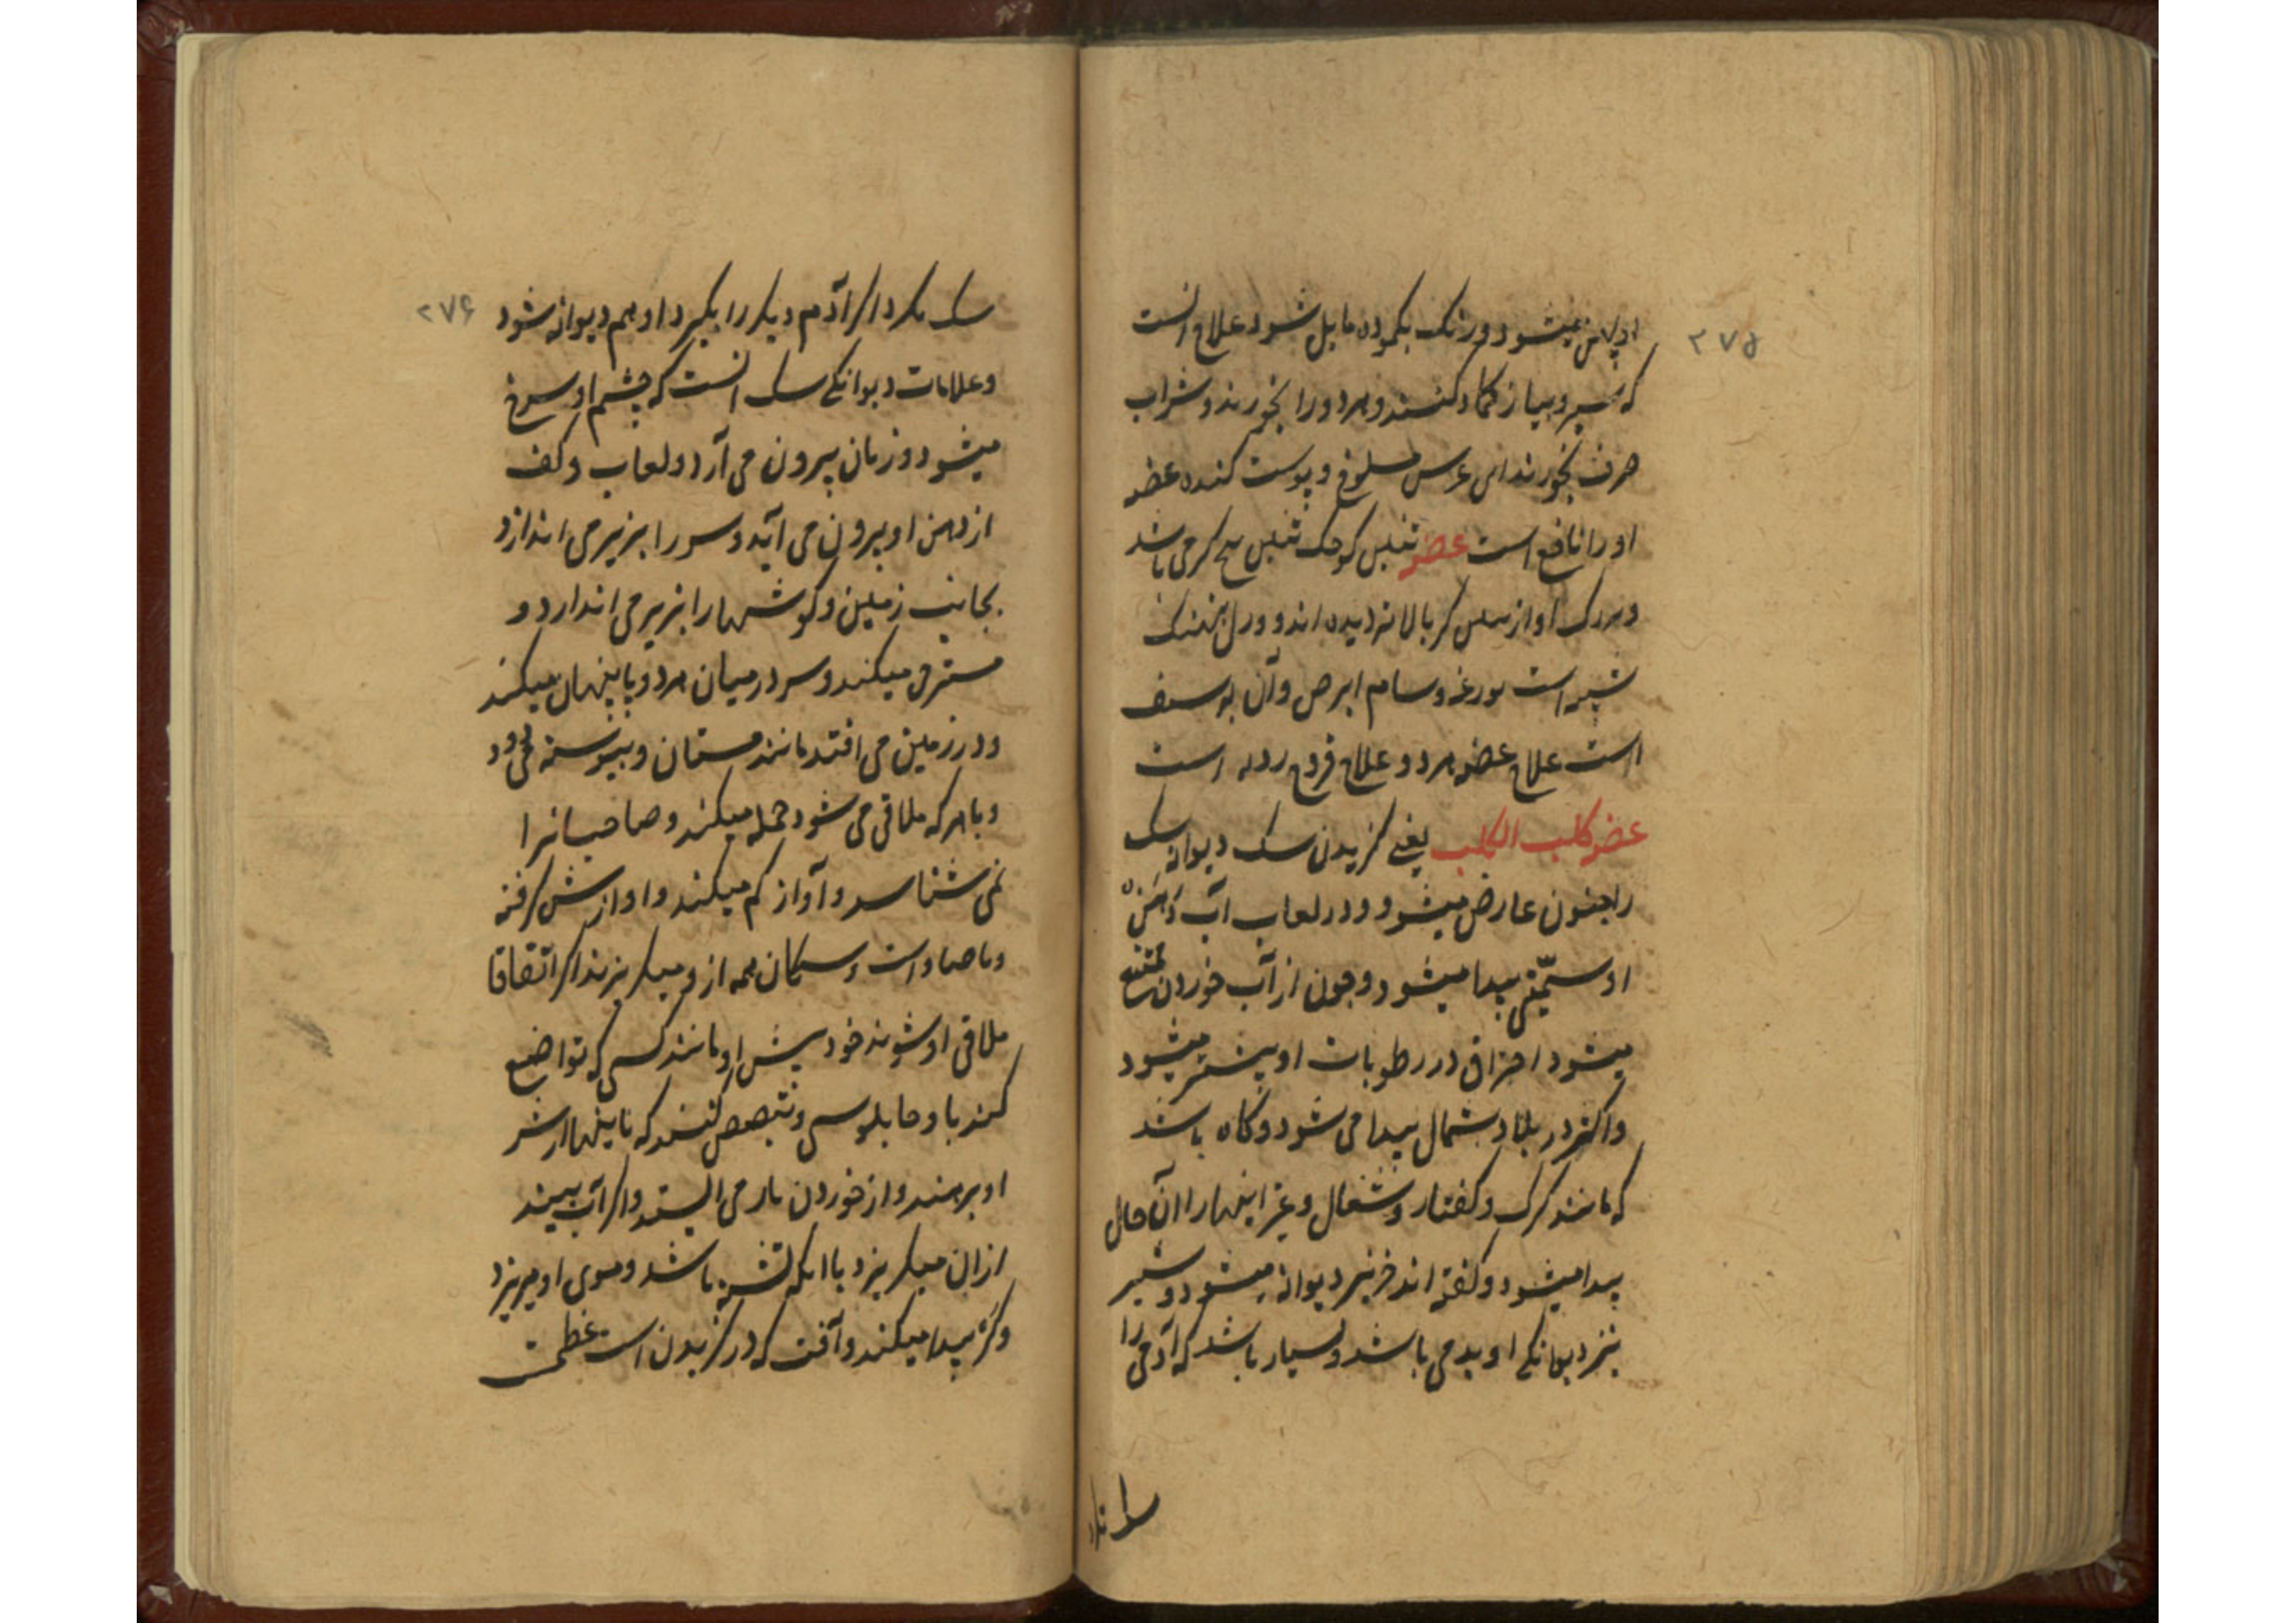 ۲۷۵
میشود و رنک بکمودة مایل شود علاج انست
که سیر و پیاز کماد کنند و هر دو را بخورند و شراب
صرف بخورند ابن عرس مسلوخ و پوست کنده عضو
او را نافع است عضو کوچک می باشد
و بزرک او از بالا تر دیده اند و
شبیه است بوزغه و سام ابرص و آن
است علاج عضو هر دو علاج قروح ردیه است
عضو کلب الکلب یعنی کزیدن سک دیوانه سک
را جنون عارض میشود و در لعاب آب دهن
او سمّیتی پیدا میشود و چون از آب خوردن ممتنع
میشود احتراق در رطوبات او بیشتر میشود
و اکثر در بلاد شمال پیدا می شود و کاه باشد
که مانند کرک و کفتار و شغال و غیر اینها را آن حال
پیدا میشود و کفته اند خنزیر دیوانه میشود و شیر
نیز دیوانکی او بد می باشد و بسیار باشد که آدمی را
سک
۲۷۶
سک بکزد اکر آدم دیکر را بکیرد او هم دیوانه شود
و علامات دیوانکی سک انست که چشم او سرخ
میشود و زبان بیرون می آرد و لعاب و کف
از دهن او بیرون می آید و سر را بزیر می اندازد
بجانب زمین و کوشها را بزیر می اندازد و
میکند و سر در میان هر دو پا پنهان میکند
و در زمین می افتد مانند مستان و پیوسته می دود
و با هر که ملاقی می شود حمله میکند و صاحبانرا
نمی شناسد و آواز کم میکند و اوازش کرفته
و با صداست و سکان همه از و میکریزند اکر اتفاقا
ملاقی او شوند خود پیش او مانند کسی که تواضع
کند با و چابلوسی و تبصبص کنند که تا اینها از شر
او برهند و از خوردن باز می ایستد و اکر آب بیند
از ان میکریزد با انکه تشنه باشد و موی او میریزد
و کر پیدا میکند و آفت که در کزیدن است عظیمست